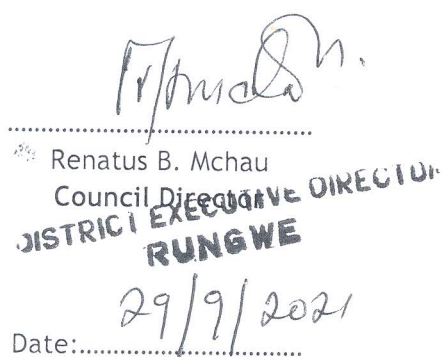 Renatus B. Mchau
Council Director
DISTRICT EXECUTIVE DIRECTOR
RUNGWE
29/9/2021
Date: